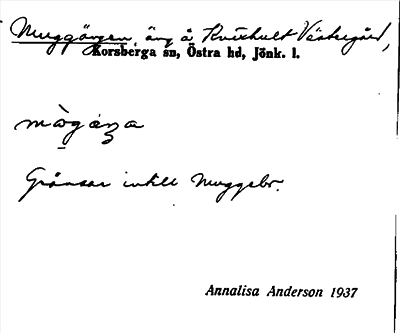 Muggängen, äng å Kvixhult Västergård,
Korsberga sn, Östra hd, Jönk. l.
Gränsar intill Muggebr.
Annalisa Anderson 1937